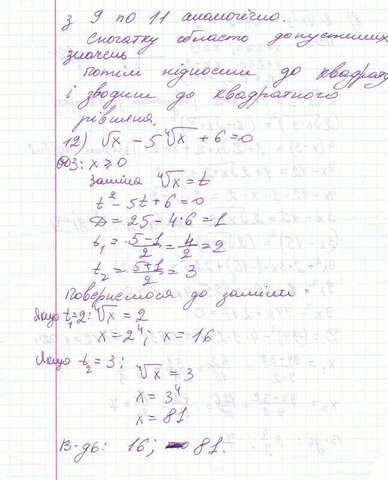 з 9 по 11 аналогічно.
Спочатку область допустимих
значень
Потім підносим до квадрату
і зводим до квадратного
рівняння.
12) √x - 5 ⁴√x + 6 = 0
ОДЗ: x ⩾ 0
Заміна ⁴√x = t
t² - 5t + 6 = 0
D = 25 - 4·6 = 1
t₁ = (5-1)/2 = 4/2 = 2
t₂ = (5+1)/2 = 3
Повернемося до заміни
Якщо t₁=2: ⁴√x = 2
x = 2⁴; x = 16
Якщо t₂ = 3;
⁴√x = 3
x = 3⁴
x = 81
В-дь: 16; 81.